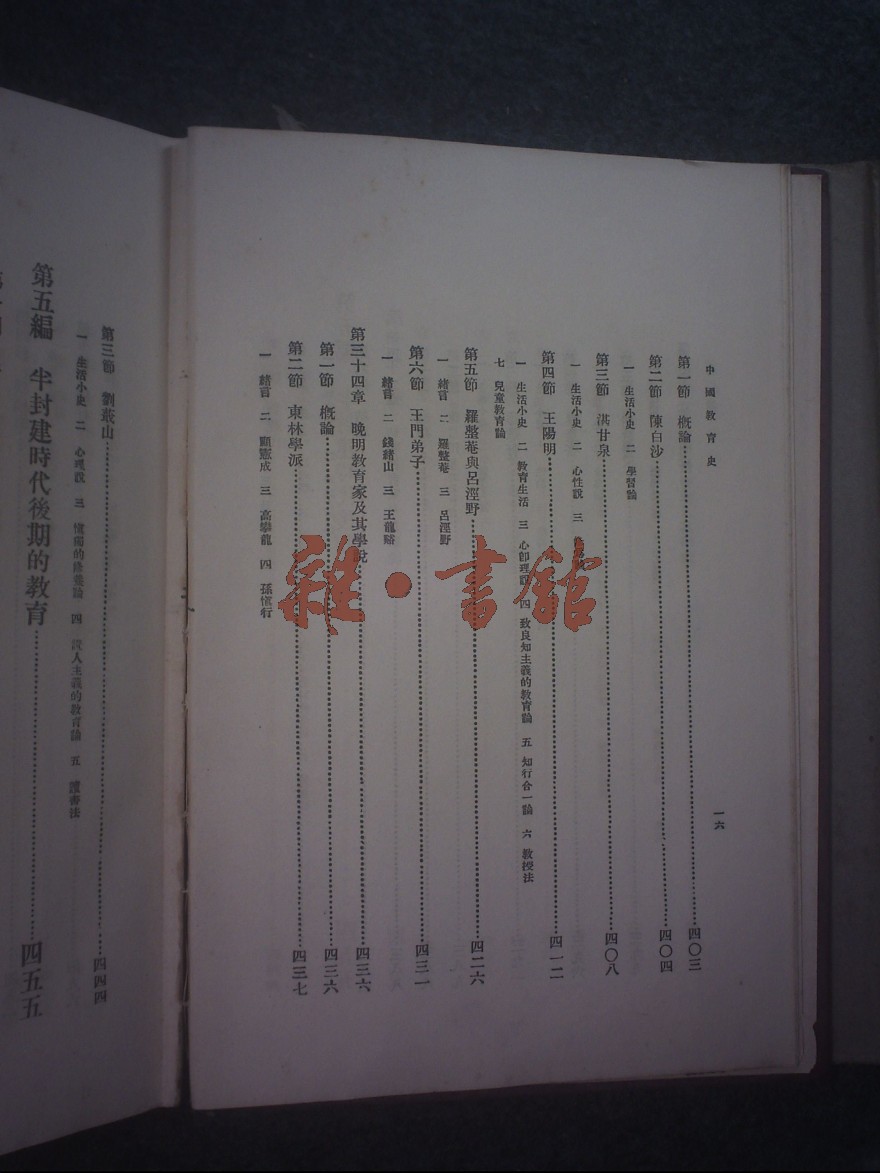 中國教育史
一六
第一節 概論……四〇三
第二節 陳白沙……四〇四
一 生活小史 二 學習論
第三節 湛甘泉……四〇八
一 生活小史 二 心性說 三
第四節 王陽明……四一二
一 生活小史 二 教育生活 三 心卽理說 四 致良知主義的教育論 五 知行合一論 六 教授法
七 兒童教育論
第五節 羅整菴與呂涇野……四二六
一 緒言 二 羅整菴 三 呂涇野
第六節 王門弟子……四三一
一 緒言 二 錢緒山 三 王龍谿
第三十四章 晚明教育家及其學說……四三六
第一節 概論……四三六
第二節 東林學派……四三七
一 緒言 二 顧憲成 三 高攀龍 四 孫愼行
第三節 劉蕺山……四四四
一 生活小史 二 心理說 三 愼獨的修養論 四 主義的教育論 五 讀書法
第五編 半封建時代後期的教育……四五五
雜·書館